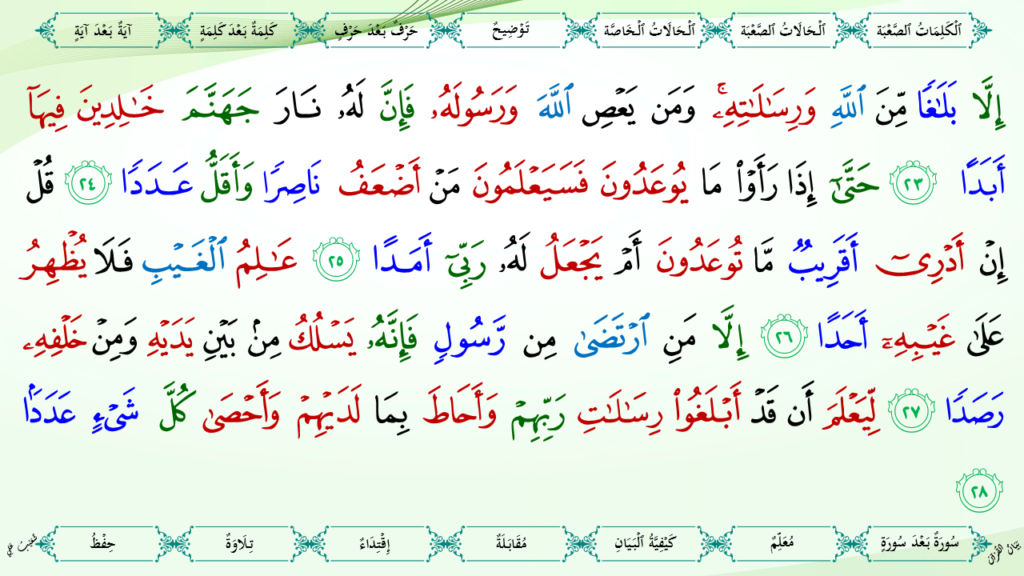 اَلْكَلِمَاتُ الصَّعْبَة اَلْحَالَاتُ الصَّعْبَة اَلْحَالَاتُ الْخَاصَّة تَوْضِيحٌ حَرْفٌ بَعْدَ حَرْفٍ كَلِمَةٌ بَعْدَ كَلِمَةٍ آيَةٌ بَعْدَ آيَةٍ
إِلَّا بَلَٰغًا مِّنَ ٱللَّهِ وَرِسَٰلَٰتِهِۦۚ وَمَن يَعْصِ ٱللَّهَ وَرَسُولَهُۥ فَإِنَّ لَهُۥ نَارَ جَهَنَّمَ خَٰلِدِينَ فِيهَآ
أَبَدًا ٢٣ حَتَّىٰٓ إِذَا رَأَوْا۟ مَا يُوعَدُونَ فَسَيَعْلَمُونَ مَنْ أَضْعَفُ نَاصِرًا وَأَقَلُّ عَدَدًا ٢٤ قُلْ
إِنْ أَدْرِىٓ أَقَرِيبٌ مَّا تُوعَدُونَ أَمْ يَجْعَلُ لَهُۥ رَبِّىٓ أَمَدًا ٢٥ عَٰلِمُ ٱلْغَيْبِ فَلَا يُظْهِرُ
عَلَىٰ غَيْبِهِۦٓ أَحَدًا ٢٦ إِلَّا مَنِ ٱرْتَضَىٰ مِن رَّسُولٍ فَإِنَّهُۥ يَسْلُكُ مِنۢ بَيْنِ يَدَيْهِ وَمِنْ خَلْفِهِۦ
رَصَدًا ٢٧ لِّيَعْلَمَ أَن قَدْ أَبْلَغُوا۟ رِسَٰلَٰتِ رَبِّهِمْ وَأَحَاطَ بِمَا لَدَيْهِمْ وَأَحْصَىٰ كُلَّ شَىْءٍ عَدَدًۢا
٢٨
سُورَةٌ بَعْدَ سُورَةٍ مُعَلِّمٌ كَيْفِيَّةُ الْبَيَانِ مُقَابَلَةٌ إِقْتِدَاءٌ تِلَاوَةٌ حِفْظٌ